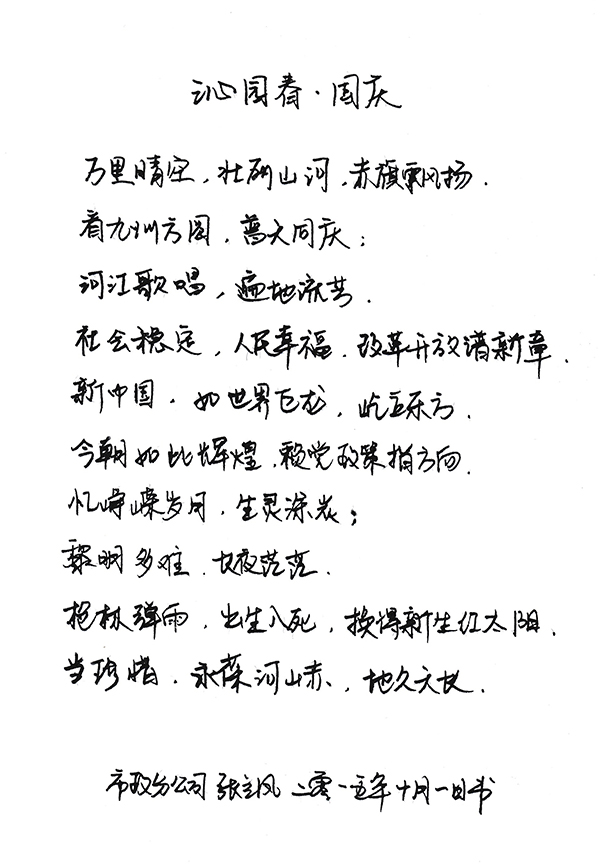 沁园春·国庆
万里晴空，壮丽山河，赤旗飘扬．
看九州方圆，普天同庆；
河江歌唱，遍地流芳．
社会稳定，人民幸福．改革开放谱新章．
新中国．如世界巨龙，屹立东方．
今朝如此辉煌．赖党政策指方向．
忆峥嵘岁月，生灵涂炭；
黎明多难．长夜茫茫．
枪林弹雨，出生入死，换得新生红太阳．
当珍惜．永葆河山赤，地久天长．
市政分公司 张立风 二零一五年十月一日书